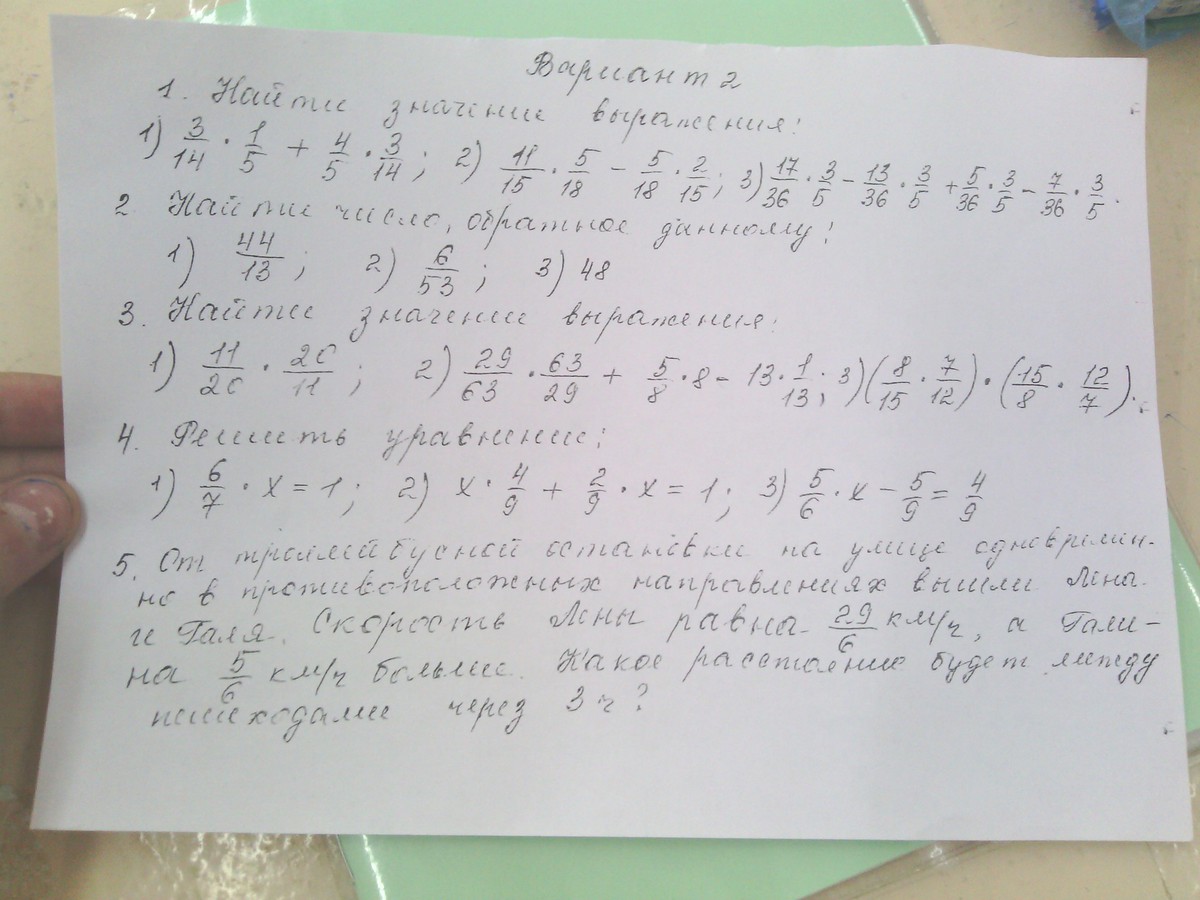 Вариант 2
1. Найти значение выражения:
1) 3/14 · 1/5 + 4/5 · 3/14; 2) 11/15 · 5/18 − 5/18 · 2/15; 3) 17/36 · 3/5 − 13/36 · 3/5 + 5/36 · 3/5 − 7/36 · 3/5.
2. Найти число, обратное данному:
1) 44/13; 2) 6/53; 3) 48
3. Найти значение выражения:
1) 11/20 · 20/11; 2) 29/63 · 63/29 + 5/8 · 8 − 13 · 1/13; 3) (8/15 · 7/12) · (15/8 · 12/7).
4. Решить уравнение:
1) 6/7 · x = 1; 2) x · 4/9 + 2/9 · x = 1; 3) 5/6 · x − 5/9 = 4/9
5. От троллейбусной остановки на улице одновремен-
но в противоположных направлениях вышли Лена
и Галя. Скорость Лены равна 29/6 км/ч, а Гали –
на 5/6 км/ч больше. Какое расстояние будет между
пешеходами через 3 ч?